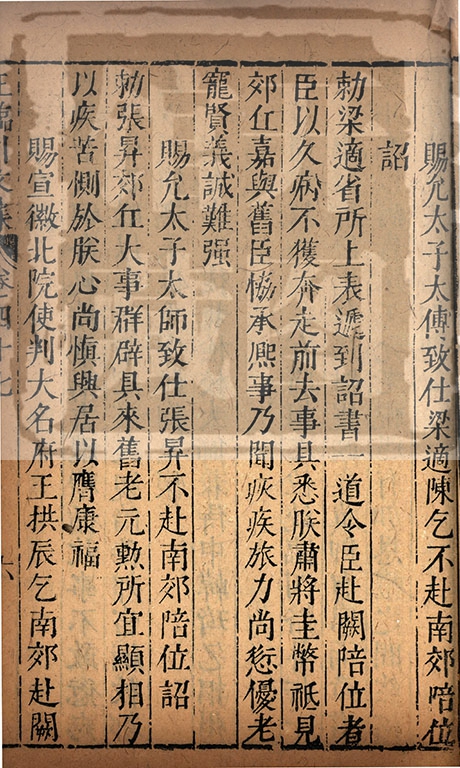 賜允太子太傅致仕梁適陳乞不赴南郊陪位
詔
勑梁適省所上表遞到詔書一道令臣赴闕陪位者
臣以久病不獲奔走前去事具悉朕肅將圭幣祗見
郊丘嘉與舊臣恊承熈事乃聞疢疾旅力尚愆優老
寵賢義誠難强
賜允太子太師致仕張昇不赴南郊陪位詔
勑張昇郊丘大事群辟具來舊老元勲所宜顯相乃
以疾苦惻於朕心尚慎興居以膺康福
賜宣徽北院使判大名府王拱辰乞南郊赴闕
王臨川文集 卷四十七 六